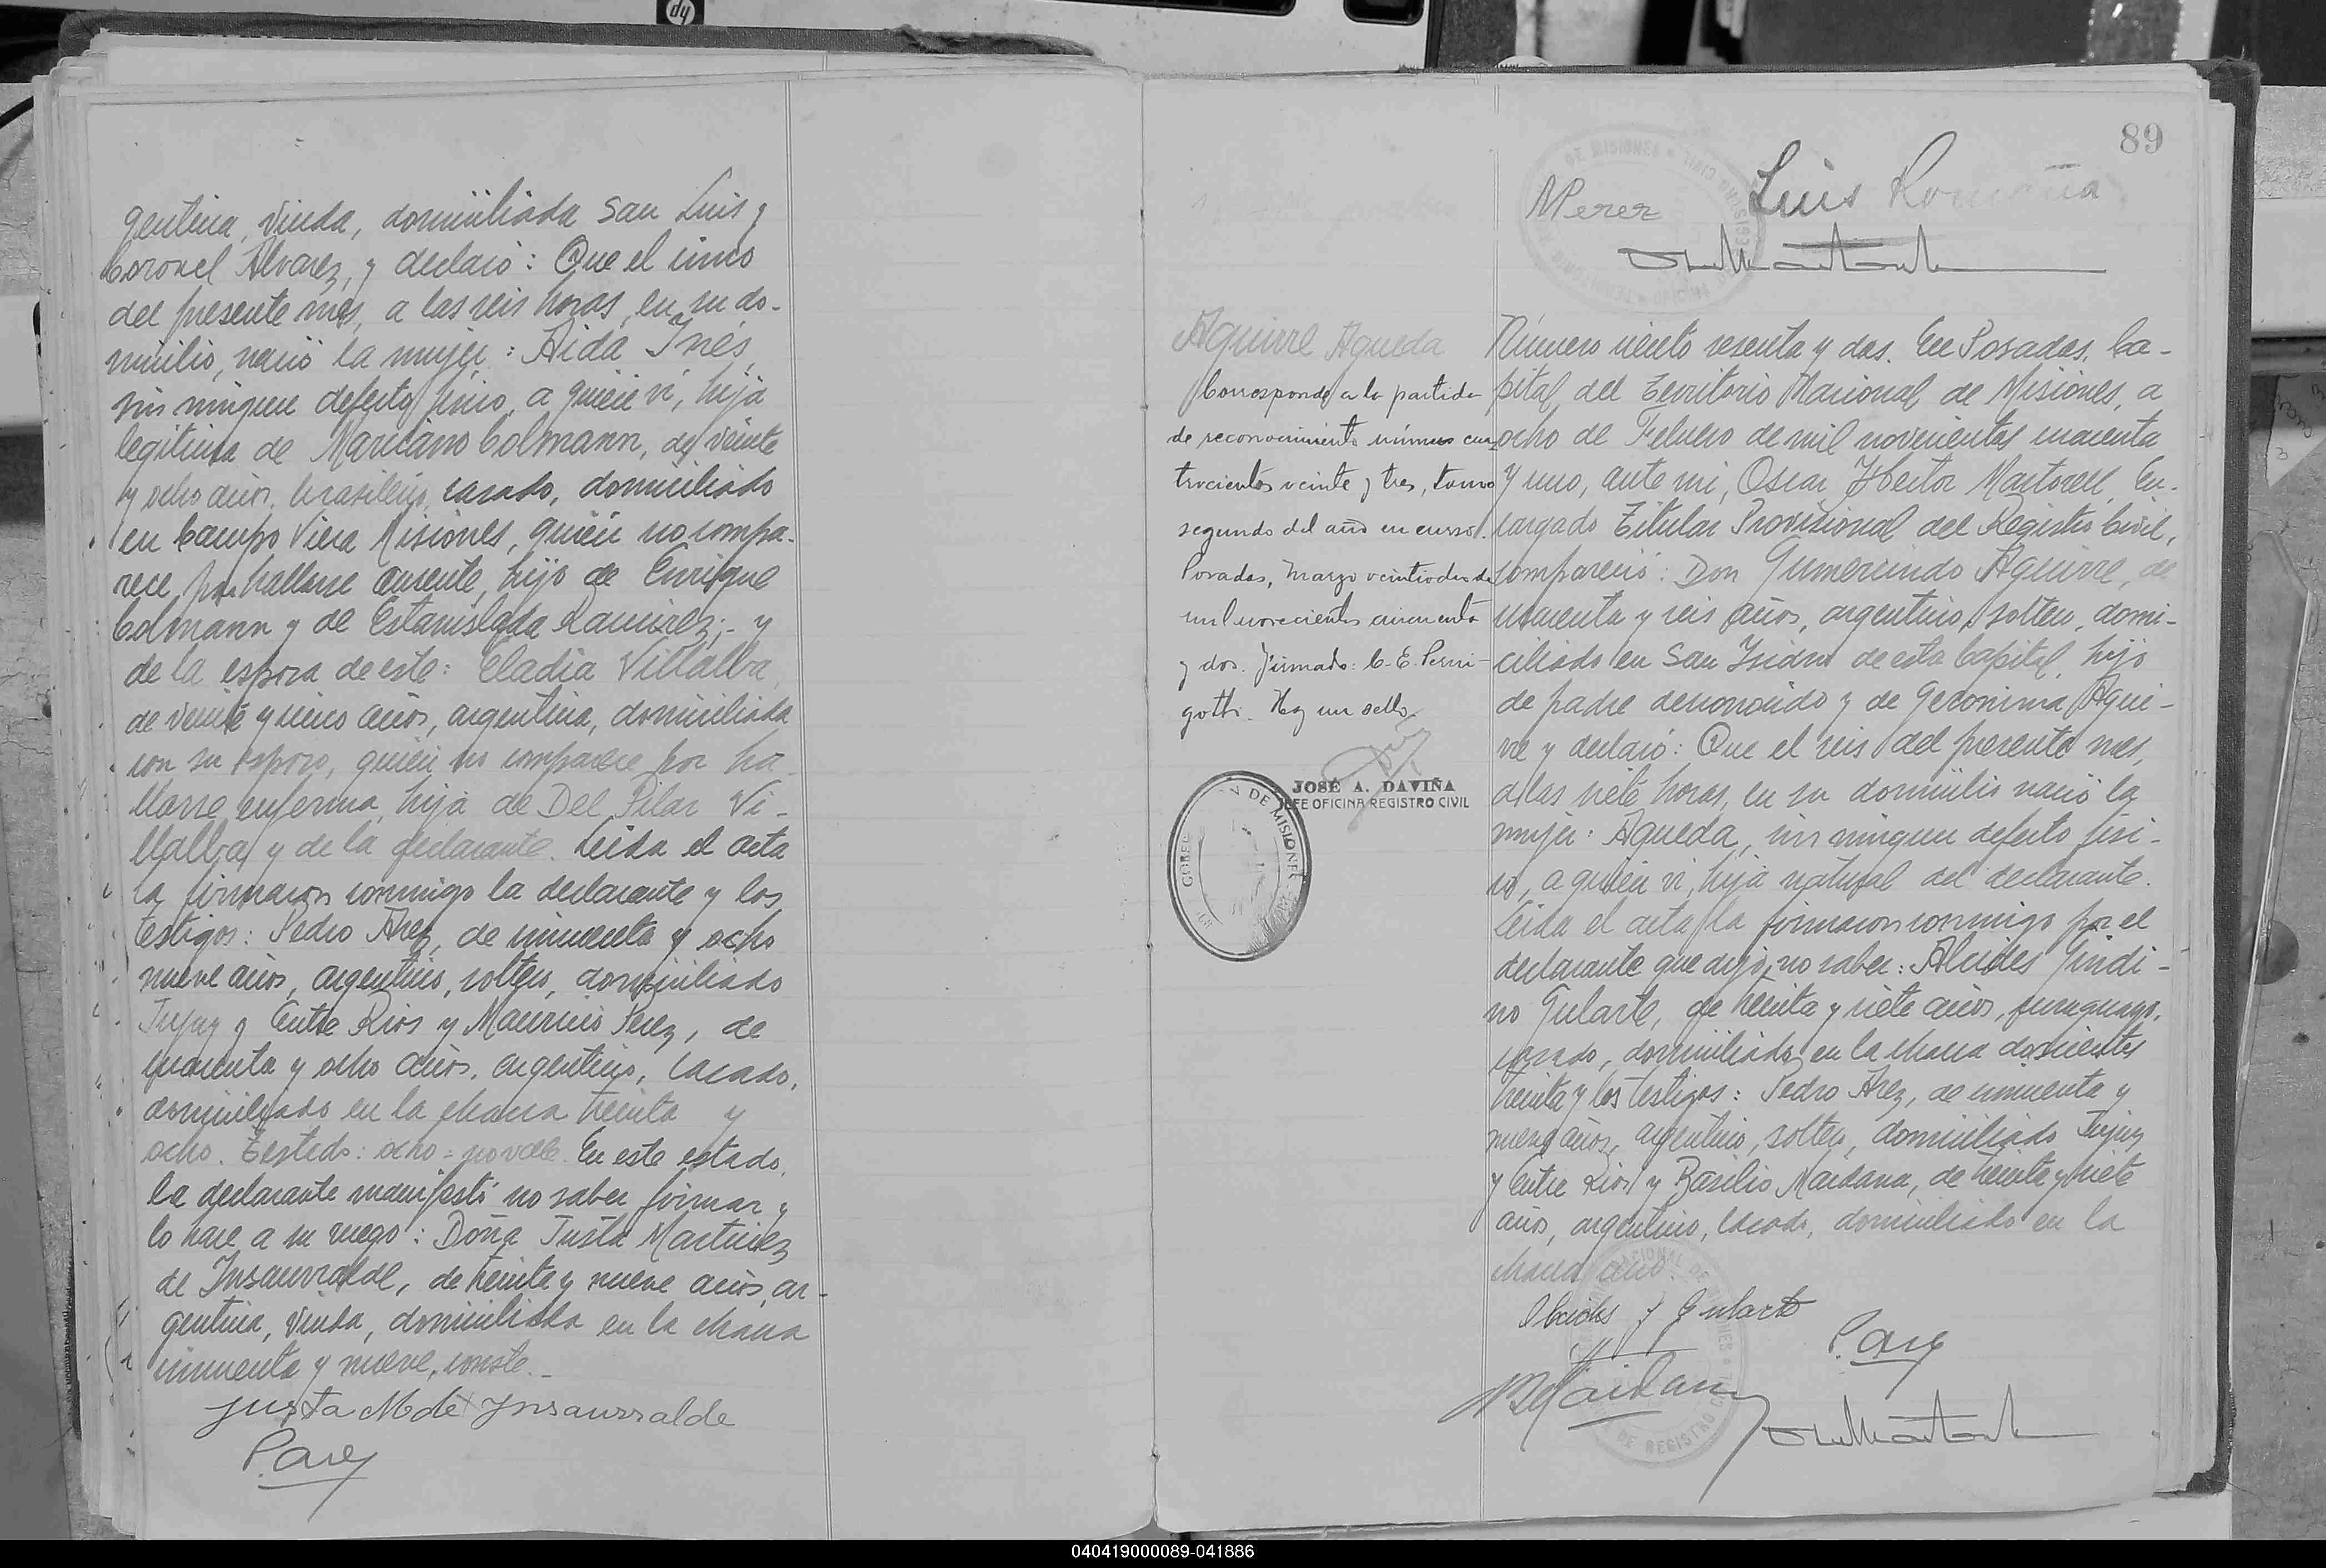 gentina, viuda, domiciliada San Luis y
Coronel Alvarez, y declaró: Que el cinco
del presente mes, a las seis horas, en su do-
micilio, nació la mujer: Aida Inés,
sin ningun defecto físico, a quién ví, hija
legitima de Mariano Colmann, de veinte
y ocho años, brasileño, casado, domiciliado
en Campo Viera Misiones, quién no compa-
rece por hallarse ausente, hijo de Enrique
Colmann y de Estanislada Ramirez;- y
de la esposa de este: Eladia Villalba,
de veinte y cinco años, argentina, domiciliada
con su esposo, quién no comparece por ha-
llarse enferma, hija de Del Pilar Vi-
llalba y de la declarante. Leida el acta
la firmaron conmigo la declarante y los
testigos: Pedro Arez, de cincuenta y ocho
nueve años, argentino, soltero, domiciliado
Jujuy y Entre Rios y Mauricio Perez, de
cuarenta y ocho años, argentino, casado,
domiciliado en la chacra treinta y
ocho. Testado: ocho = no vale. En este estado,
la declarante manifestó no saber firmar y
lo hace a su ruego: Doña Justa Martinez
de Insaurralde, de treinta y nueve años, ar-
gentina, viuda, domiciliada en la chacra
cincuenta y nueve, conste.-
Justa M de Insaurralde
P. Arez
89
MPerez Luis Romaña
Aguirre Agueda
Corresponde a la partida
de reconocimiento número cua-
trocientos veinte y tres, tomo
segundo del año en curso.
Posadas, Marzo veintidos de
mil novecientos cincuenta
y dos. Firmado: C. E. Perni-
gotti. Hay un sello.
JOSÉ A. DAVIÑA
JEFE OFICINA REGISTRO CIVIL
DE MISIONES
Número ciento sesenta y dos. En Posadas, Ca-
pital del Territorio Nacional de Misiones, a
ocho de Febrero de mil novecientos cincuenta
y uno, ante mi, Oscar Hector Martorell, En-
cargado Titular Provisional del Registro Civil,
compareció: Don Gumersindo Aguirre, de
cuarenta y seis años, argentino, soltero, domi-
ciliado en San Isidro de esta Capital, hijo
de padre desconocido y de Geronima Agui-
rre y declaró: Que el seis del presente mes,
a las siete horas, en su domicilio nació la
mujer: Agueda, sin ningun defecto físi-
co, a quién ví, hija natural del declarante.
Leida el acta, la firmaron conmigo por el
declarante que dijo no saber: Alcides Jindi-
no Gularte, de treinta y siete años, paraguayo,
casado, domiciliado en la chacra doscientos
treinta y los testigos: Pedro Arez, de cincuenta y
nueve años, argentino, soltero, domiciliado Jujuy
y Entre Rios y Basilio Maidana, de treinta y siete
años, argentino, casado, domiciliado en la
chacra
Alcides J Gularte
P. Arez
BMaidana
040419000089-041886